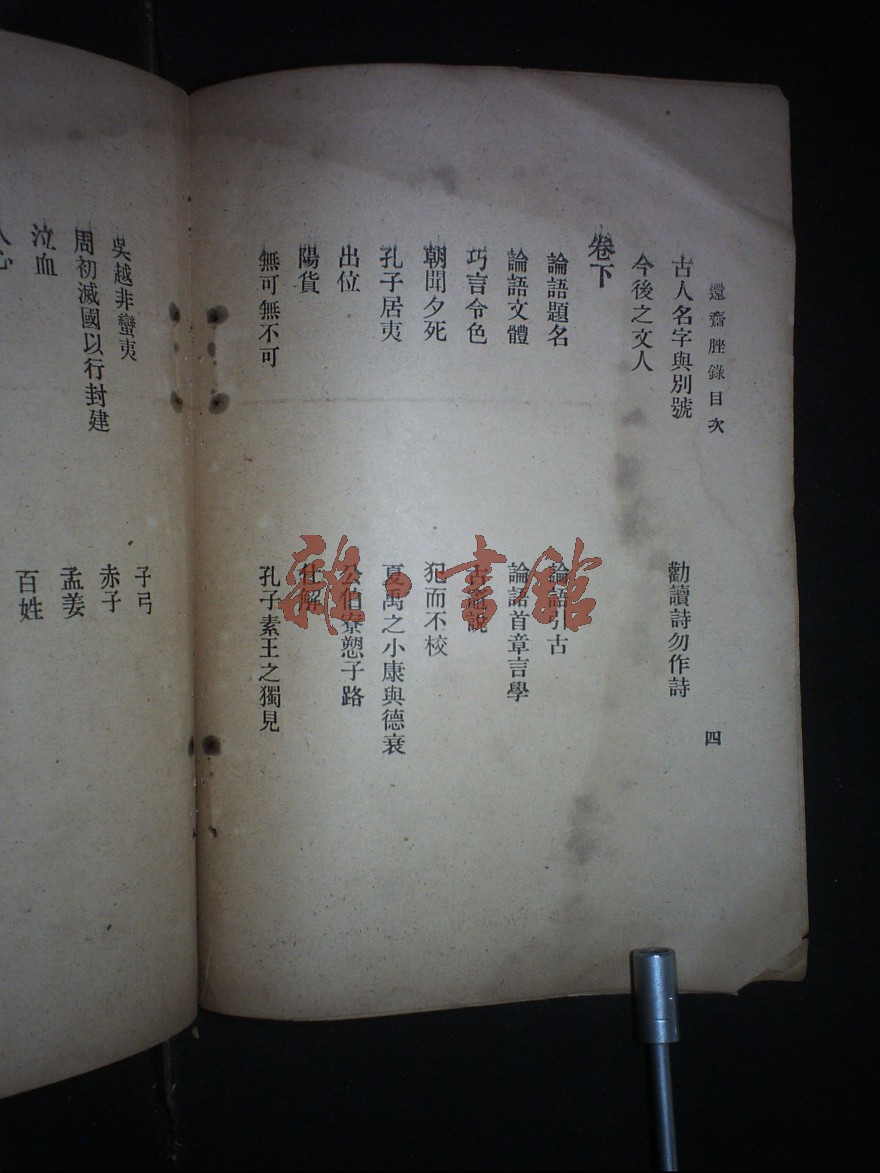 還齋脞錄目次　四
古人名字與別號　勸讀詩勿作詩
今後之文人
卷下
論語題名　論語引古
論語文體　論語首章言學
巧言令色　說
朝聞夕死　犯而不校
孔子居夷　夏禹之小康與德衰
出位　公伯寮愬子路
陽貨　解
無可無不可　孔子素王之獨見
吳越非蠻夷　子弓
周初滅國以行封建　赤子
泣血　孟姜
心　百姓
雜·書館